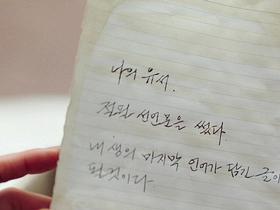 나의 유서.
전원 선언문을 썼다.
내 생의 마지막 언어가 담긴 글이
될것이다